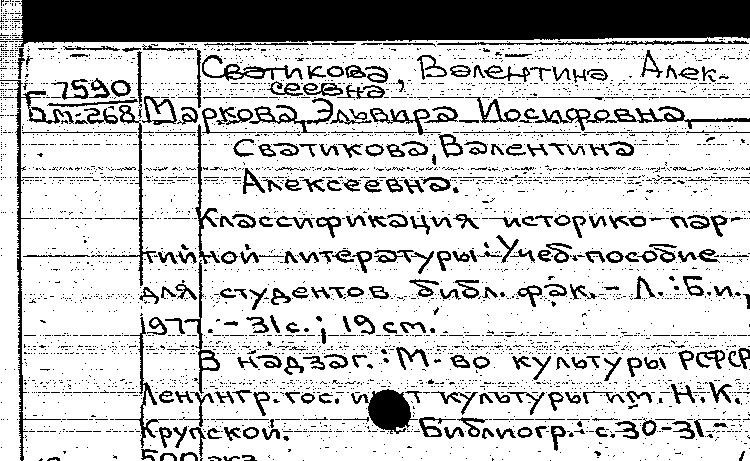 Сватикова, Валентина Алек-
сеевна,
7590
Бм-268 Маркова, Эльвира Иосифовна,
Сватикова, Валентина
Алексеевна.
Классификация историко-пар-
тийной литературы: Учеб. пособие
для студентов библ. фак. - Л.: Б.и.,
1977. - 31 с.; 19 см.
В надзаг.: М-во культуры РСФСР
Ленингр. гос. и т культуры им. Н.К.
Крупской. Библиогр.: с. 30-31. -
500 экз.